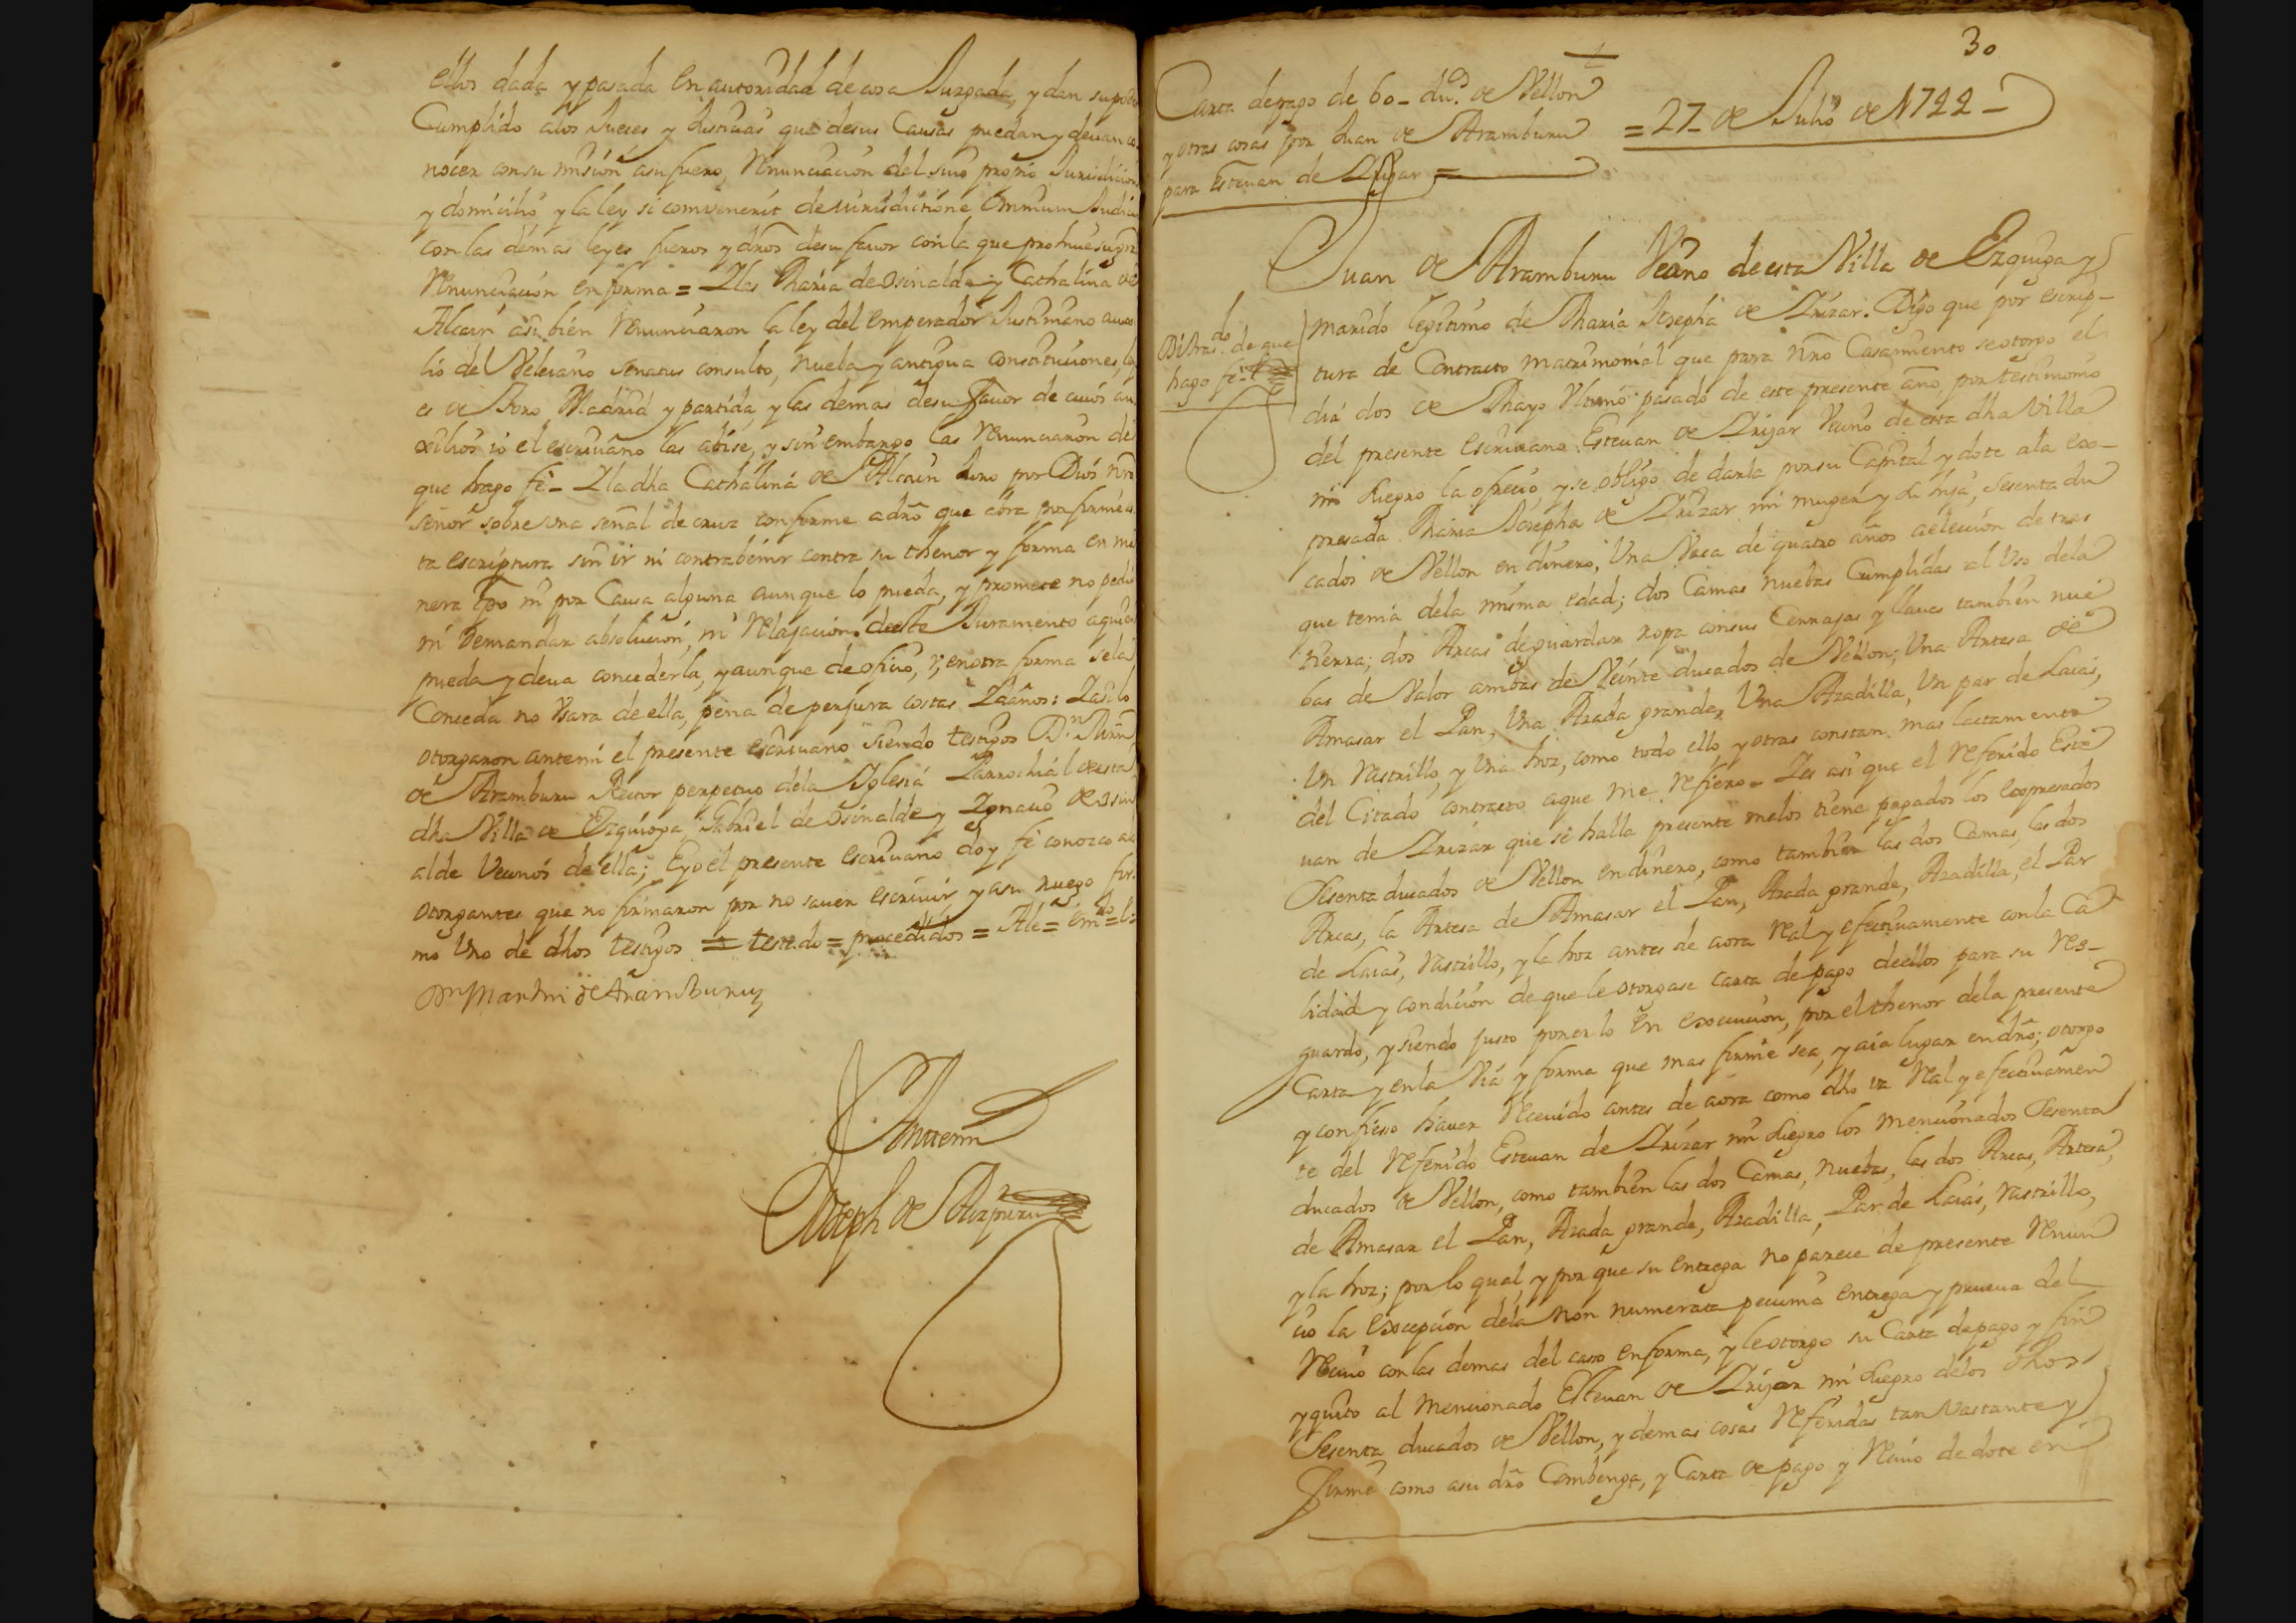 ellos dada y pasada en autoridad de cosa Juzgada, y dan su poder
Cumplido a los Jueses y Justicias que de sus Causas puedan y deuan co-
nocer con su mision a su fuero, Renunciacion del suio proprio Jurisdicion
y domicilio y la ley si combenerit de iurisdictione omnium Judicum
con las demas leyes fueros y dros de su fauor con la que prohiue su gral
Renunciacion en forma = Y las Maria de Osinalde y Cathalina de
Alcain asi bien renunciaron la ley del emperador Justiniano auxi-
lio del Veleiano senatus consulto, nueba y antigua constituciones, ley
es de Toro Madrid y partida y las demas de su fauor de cuios au
xilios io el escriuano las abise, y sin embargo las renunciaron de
que hago fe - Y la dha Cathalina de Alcain Juro por Dios nro
señor sobre una señal de cruz conforme a dro que abra por firme es
ta escriptura sin ir ni contrabenir contra su thenor y forma en ma
nera tpo ni por Causa alguna aunque lo pueda, y promete no pedir
ni demandar absolucion, ni relajacion deeste Juramento a quien
pueda y deua concederla, y aunque de oficio, v, en otra forma se la
Conceda no Vsara de ella, pena de perjura costas y daños: Y asi lo
otorgaron ante mi el presente escriuano siendo testigos Dn Mrn
de Aramburu Rector perpetuo dela Yglesia Parrochial de esta
dha Villa de Ezquioga, Gabriel de Osinalde y Ygnacio de Osin
alde Vecinos de ella; E yo el presente escriuano doy fe conozco a los
otorgantes que no firmaron por no sauer escriuir y a su ruego fir-
mo Vno de dhos testigos = testado = procedidos =
Dn Martin de Aramburu
Antemi
Joseph de Aizpuru
30
Carta de pago de 60 - dus. de Vellon
y otras cosas por Juan de Aramburu
para Esteuan de Yrizar =
= 27 - de Julio de 1722 -
Juan de Aramburu Vecino de esta Villa de Ezquioga y
marido legitimo de Maria Josepha de Yrizar. Digo que por escrip-
Di tras.do de que
hago fe
tura de Contracto matrimonial que para nro Casamiento se otorgo el
dia dos de Mayo Vltimo pasado de este presente año, por testimonio
del presente escriuano Esteuan de Yrizar Vecino de esta dha Villa
mi suegro la ofrecio, y se obligo de darla por su Capital y dote a la ex-
presada Maria Josepha de Yrizar mi muger y su hija, sesenta du
cados de Vellon en dinero, Una Vaca de quatro años a eleccion de tres
que tenia dela misma edad; dos Camas nuebas Cumplidas al Vso dela
tierra; dos Arcas de guardar ropa con sus Cerrajas y llaues tambien nue
bas de Valor ambas de Veinte ducados de Vellon; Una Artesa de
Amasar el Pan, Una Azada grande, Una Azadilla, Un par de Laias,
Un rastrillo, y Una hoz, como todo ello y otras constan mas lactamente
del Citado contracto a que me refiero - Y es asi que el referido Este
uan de Yrizar que se halla presente me los tiene pagados los expresados
Sesenta ducados de Vellon en dinero, como tambien las dos Camas, las dos
Arcas, la Artesa de Amasar el Pan, Azada grande, Azadilla, el Par
de Laias, rastrillo, y la hoz antes de aora real y efectiuamente con la Ca
lidad y condicion de que le otorgase carta de pago de ellos para su res-
guardo, y siendo justo ponerlo en execucion, por el thenor dela presente
Carta y en la Via y forma que mas firme sea, y aia lugar en dro; otorgo
y confieso hauer reciuido antes de aora como dho va real y efectiuamen
te del referido Esteuan de Yrizar mi suegro los mencionados Sesenta
ducados de Vellon, como tambien las dos Camas, nuebas, las dos Arcas, Artesa,
de Amasar el Pan, Azada grande, Azadilla, Par de Laias, rastrillo,
y la hoz; por lo qual, y por que su entrega no parece de presente renun
cio la excepcion dela non numerata pecunia entrega y prueua del
reciuo con las demas del caso en forma, y le otorgo su Carta de pago y fin
y quito al mencionado Esteuan de Yrizar mi suegro delos dhos
Sesenta ducados de Vellon, y demas cosas referidas tan Vastante y
firme como a su dro Combenga, y Carta de pago y reciuo de dote en